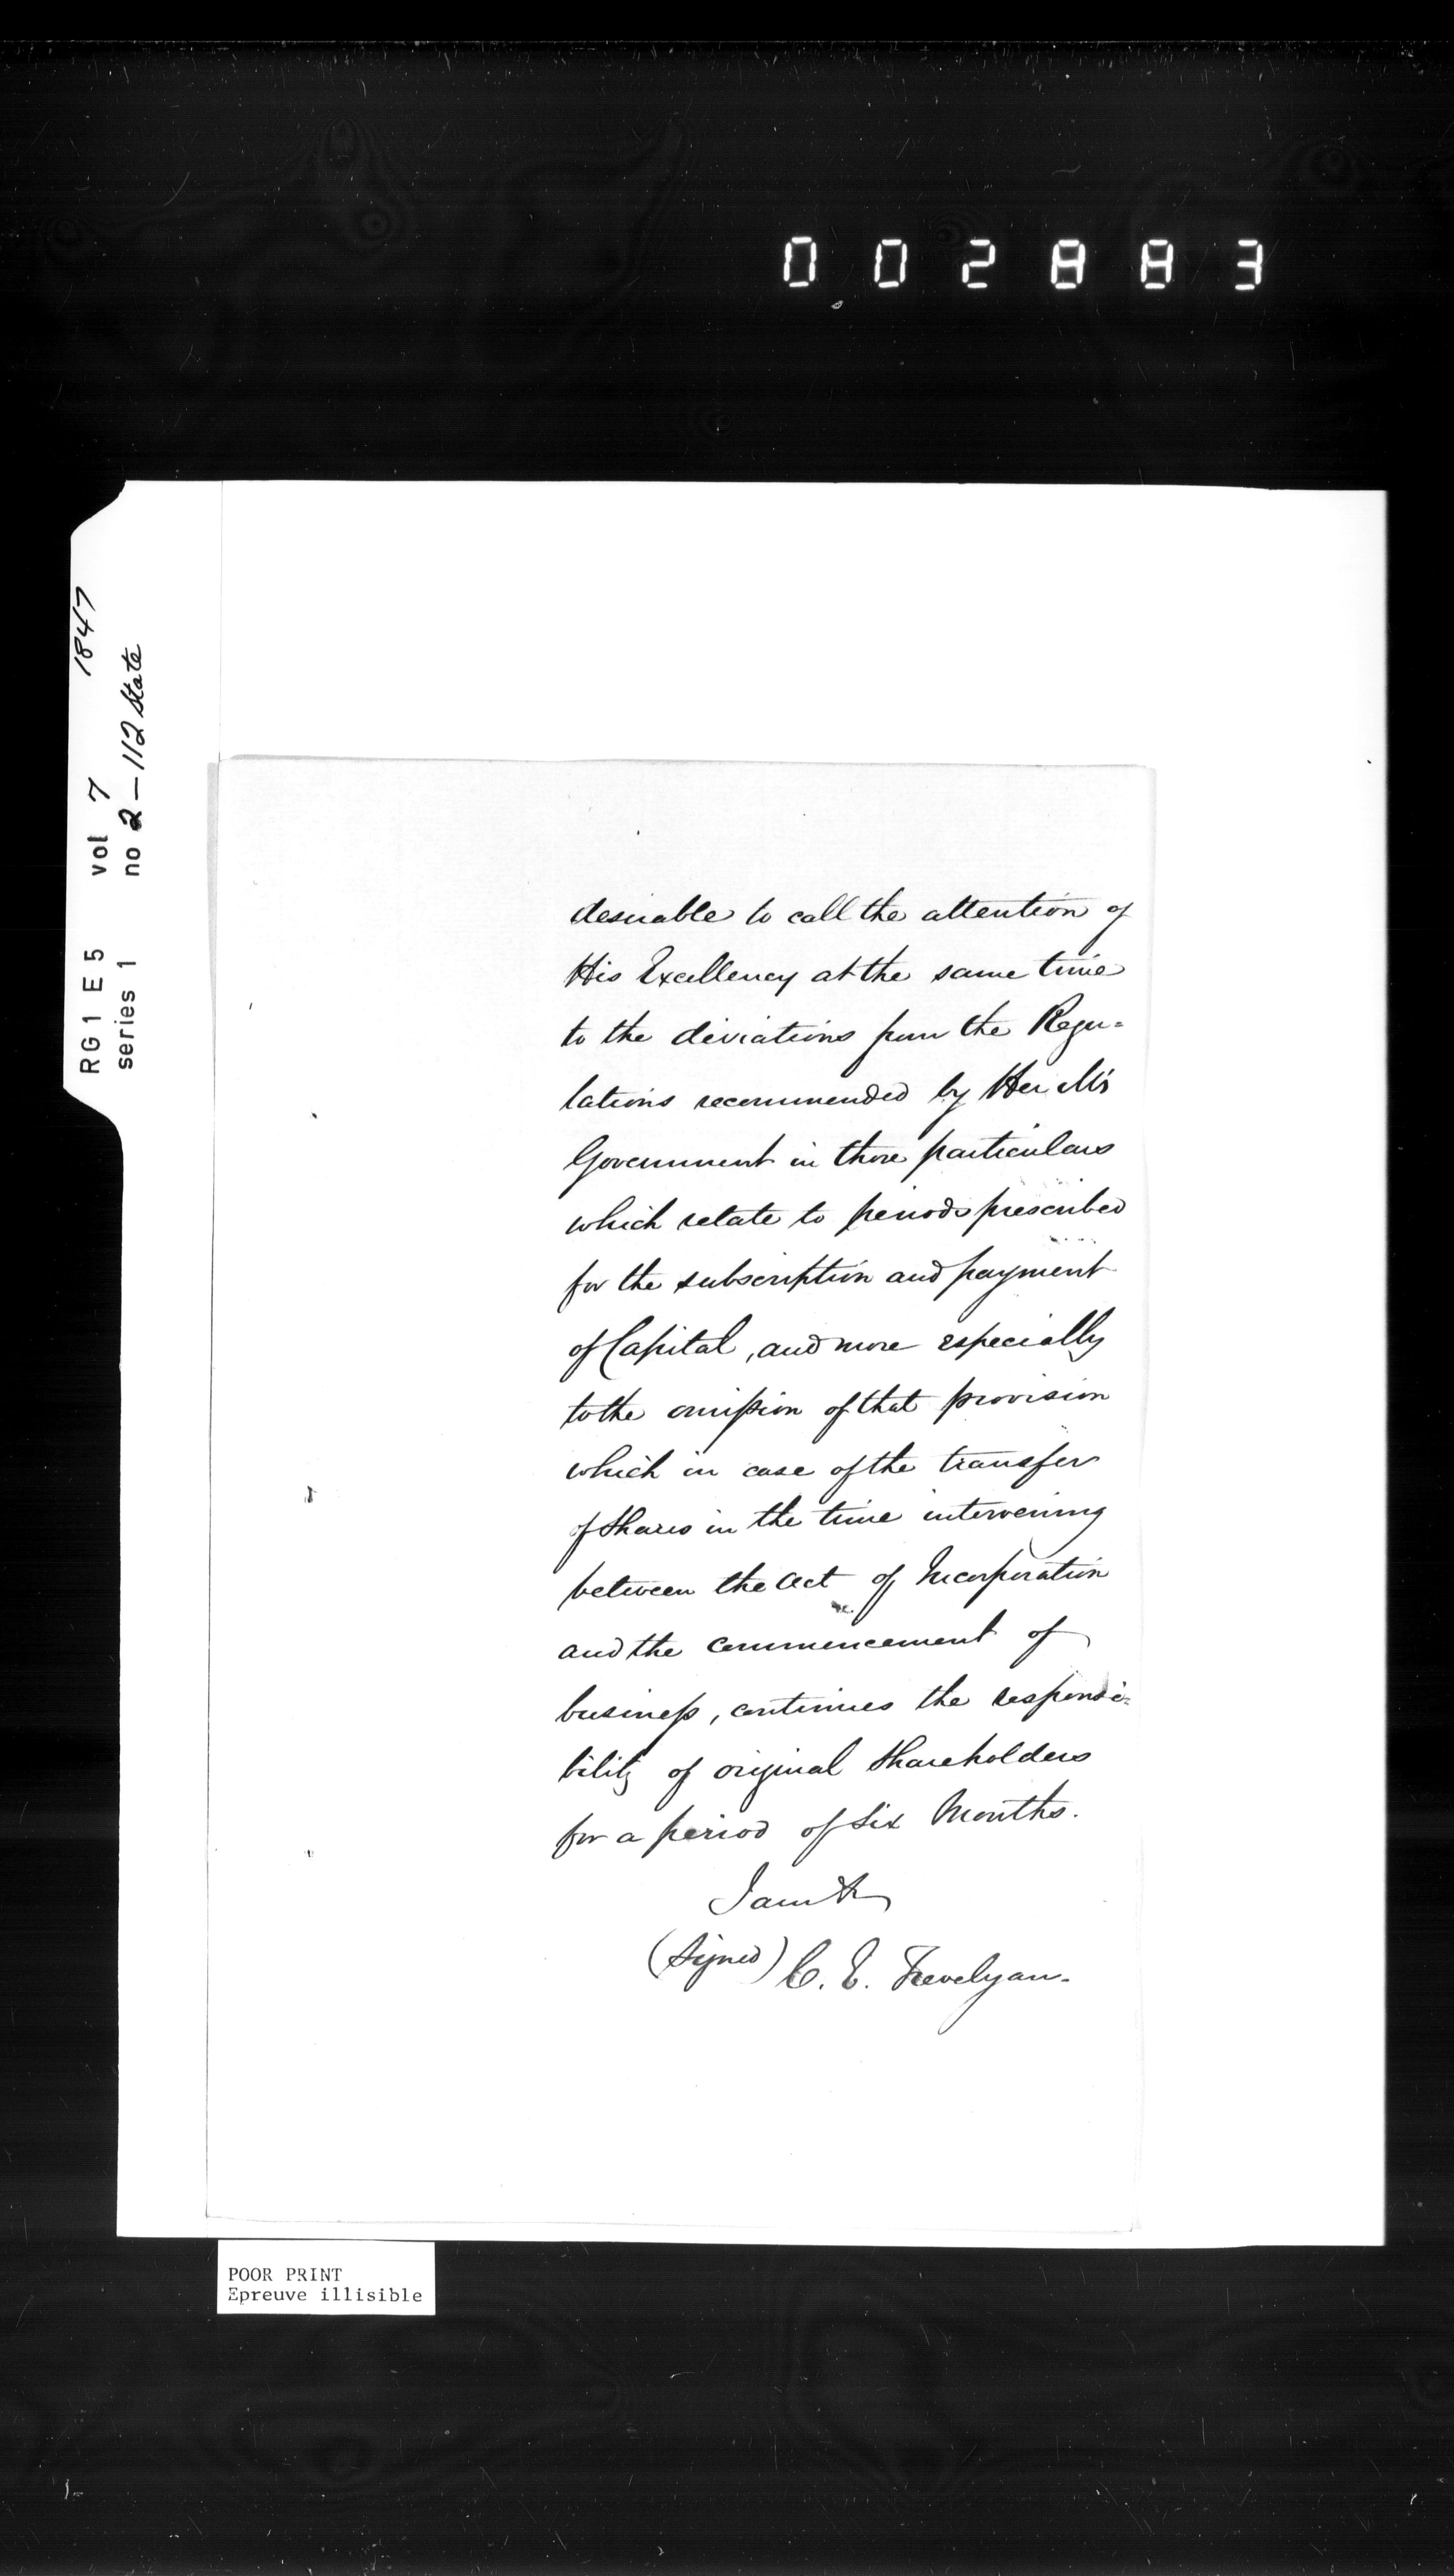 002883
RG1 E5 vol 7 1847
series 1 no 2 – 112 State
desirable to call the attention of
His Excellency at the same time
to the deviations from the Regu=
lations recommended by Her M's
Government in those particulars
which relate to periods prescribed
for the subscription and payment
of Capital, and more especially
to the omission of that provision
which in case of the transfer
of Shares in the time intervening
between the Act of Incorporation
and the Commencement of
business, continues the responsi=
bility of original Shareholders
for a period of Six Months.
I am &c
(Signed) C. E. Trevelyan.
POOR PRINT
Epreuve illisible